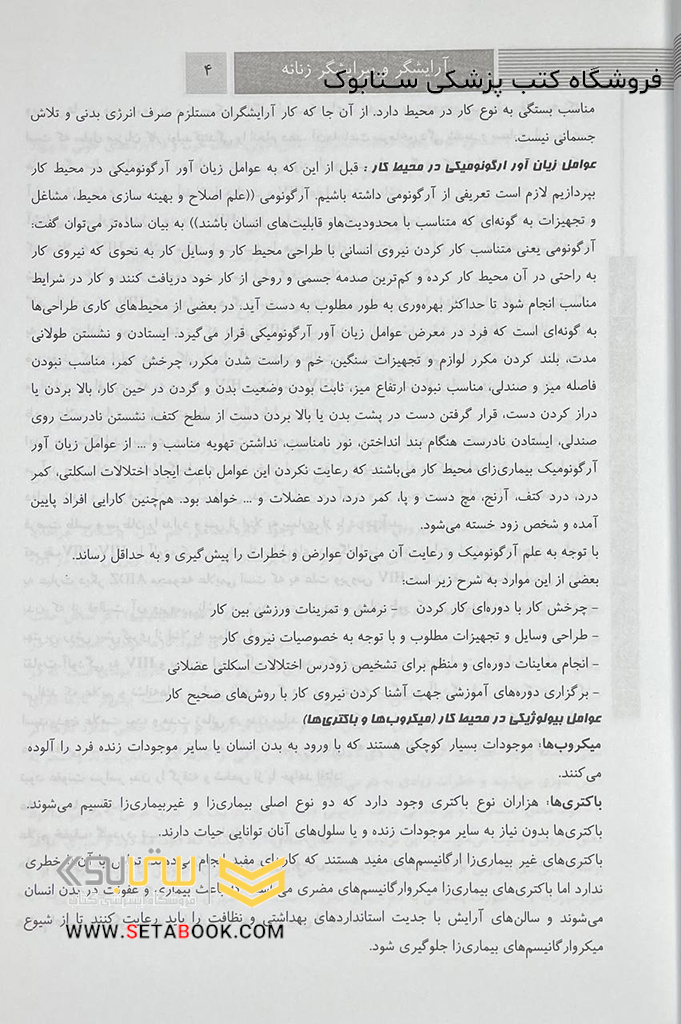 ۴
آرایشگر و پیرایشگر زنانه
فروشگاه کتب پزشکی ستابوک
مناسب بستگی به نوع کار در محیط دارد. از آن جا که کار آرایشگران مستلزم صرف انرژی بدنی و تلاش
جسمانی نیست.
عوامل زیان آور ارگونومیکی در محیط کار : قبل از این که به عوامل زیان آور آرگونومیکی در محیط کار
بپردازیم لازم است تعریفی از آرگونومی داشته باشیم. آرگونومی ((علم اصلاح و بهینه سازی محیط، مشاغل
و تجهیزات به گونه‌ای که متناسب با محدودیت‌هاو قابلیت‌های انسان باشند)) به بیان ساده‌تر می‌توان گفت:
آرگونومی یعنی متناسب کار کردن نیروی انسانی با طراحی محیط کار و وسایل کار به نحوی که نیروی کار
به راحتی در آن محیط کار کرده و کم‌ترین صدمه جسمی و روحی از کار خود دریافت کنند و کار در شرایط
مناسب انجام شود تا حداکثر بهره‌وری به طور مطلوب به دست آید. در بعضی از محیط‌های کاری طراحی‌ها
به گونه‌ای است که فرد در معرض عوامل زیان آور آرگونومیکی قرار می‌گیرد. ایستادن و نشستن طولانی
مدت، بلند کردن مکرر لوازم و تجهیزات سنگین، خم و راست شدن مکرر، چرخش کمر، مناسب نبودن
فاصله میز و صندلی، مناسب نبودن ارتفاع میز، ثابت بودن وضعیت بدن و گردن در حین کار، بالا بردن یا
دراز کردن دست، قرار گرفتن دست در پشت بدن یا بالا بردن دست از سطح کتف، نشستن نادرست روی
صندلی، ایستادن نادرست هنگام بند انداختن، نور نامناسب، نداشتن تهویه مناسب و ... از عوامل زیان آور
آرگونومیک بیماری‌زای محیط کار می‌باشند که رعایت نکردن این عوامل باعث ایجاد اختلالات اسکلتی، کمر
درد، درد کتف، آرنج، مچ دست و پا، کمر درد، درد عضلات و ... خواهد بود. هم‌چنین کارایی افراد پایین
آمده و شخص زود خسته می‌شود.
با توجه به علم آرگونومیک و رعایت آن می‌توان عوارض و خطرات را پیش‌گیری و به حداقل رساند.
بعضی از این موارد به شرح زیر است:
– چرخش کار با دوره‌ای کار کردن – نرمش و تمرینات ورزشی بین کار
– طراحی وسایل و تجهیزات مطلوب و با توجه به خصوصیات نیروی کار
– انجام معاینات دوره‌ای و منظم برای تشخیص زودرس اختلالات اسکلتی عضلانی
– برگزاری دوره‌های آموزشی جهت آشنا کردن نیروی کار با روش‌های صحیح کار
عوامل بیولوژیکی در محیط کار (میکروب‌ها و باکتری‌ها)
میکروب‌ها: موجودات بسیار کوچکی هستند که با ورود به بدن انسان یا سایر موجودات زنده فرد را آلوده
می‌کنند.
باکتری‌ها: هزاران نوع باکتری وجود دارد که دو نوع اصلی بیماری‌زا و غیربیماری‌زا تقسیم می‌شوند.
باکتری‌ها بدون نیاز به سایر موجودات زنده و یا سلول‌های آنان توانایی حیات دارند.
باکتری‌های غیر بیماری‌زا ارگانیسم‌های مفید هستند که کارهای مفید انجام می‌دهند و تماس با آن‌ها خطری
ندارد اما باکتری‌های بیماری‌زا میکروارگانیسم‌های مضری می‌باشند که باعث بیماری و عفونت در بدن انسان
می‌شوند و سالن‌های آرایش با جدیت استانداردهای بهداشتی و نظافت را باید رعایت کنند تا از شیوع
میکروارگانیسم‌های بیماری‌زا جلوگیری شود.
ستابوک
فروشگاه اینترنتی کتاب
WWW.SETABOOK.COM